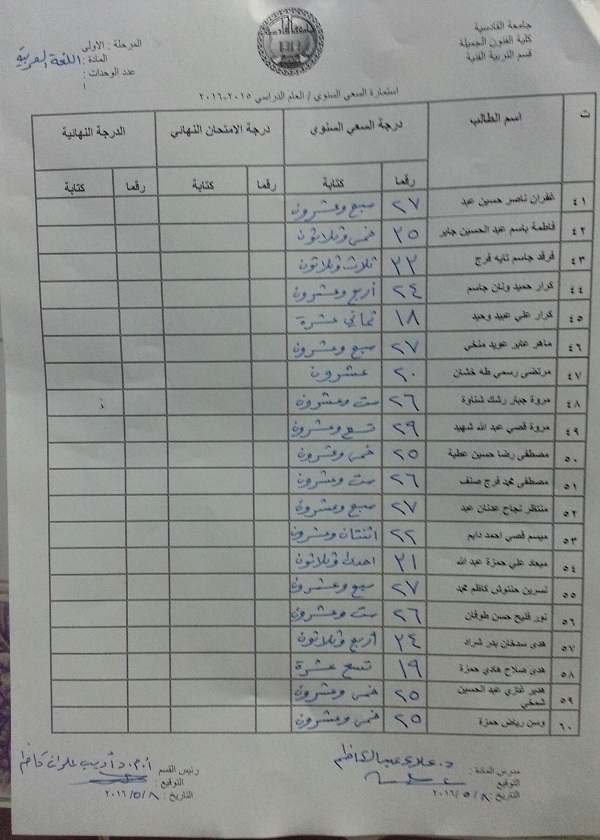 جامعة القادسية
كلية الفنون الجميلة
قسم التربية الفنية
المرحلة : الاولى
المادة : اللغة العربية
عدد الوحدات :
استمارة السعي السنوي / العام الدراسي ٢٠١٥-٢٠١٦
ت اسم الطالب درجة السعي السنوي درجة الامتحان النهائي الدرجة النهائية
رقما كتابة رقما كتابة رقما كتابة
٤١ غفران ناصر حسين عبد ٢٧ سبع وعشرون
٤٢ فاطمة باسم عبد الحسين جابر ٣٥ خمس وثلاثون
٤٣ فرقد جاسم تايه فرج ٣٣ ثلاث وثلاثون
٤٤ كرار حميد ونان جاسم ٢٤ أربع وعشرون
٤٥ كرار علي عبيد وحيد ١٨ ثماني عشرة
٤٦ ماهر عابر عويد منخي ٢٧ سبع وعشرون
٤٧ مرتضى رسمي طه خشان ٢٠ عشرون
٤٨ مروة جبار رشك شناوة ٢٦ ست وعشرون
٤٩ مروة قصي عبد الله شهيد ٢٩ تسع وعشرون
٥٠ مصطفى رضا حسين عطية ٢٥ خمس وعشرون
٥١ مصطفى محمد فرج صنف ٢٦ ست وعشرون
٥٢ منتظر نجاح عدنان عبد ٢٧ سبع وعشرون
٥٣ ميسم قصي احمد دايم ٢٢ اثنتان وعشرون
٥٤ ميعاد علي حمزة عبد الله ٣١ احدى وثلاثون
٥٥ نسرين حنتوش كاظم محمد ٢٧ سبع وعشرون
٥٦ نور فليح حسن طوفان ٢٦ ست وعشرون
٥٧ هدى سدخان بدر شراد ٣٤ أربع وثلاثون
٥٨ هدى صلاح هادي حمزة ١٩ تسع عشرة
٥٩ هدير غازي عبد الحسين شمخي ٢٥ خمس وعشرون
٦٠ وسن رياض حمزة ٢٥ خمس وعشرون
مدرس المادة : د. علاء عبد الكاظم
التوقيع :
التاريخ : ٢٠١٦/٥/٨
رئيس القسم أ.م.د أديب علوان كاظم
التوقيع :
التاريخ : ٢٠١٦/٥/٨